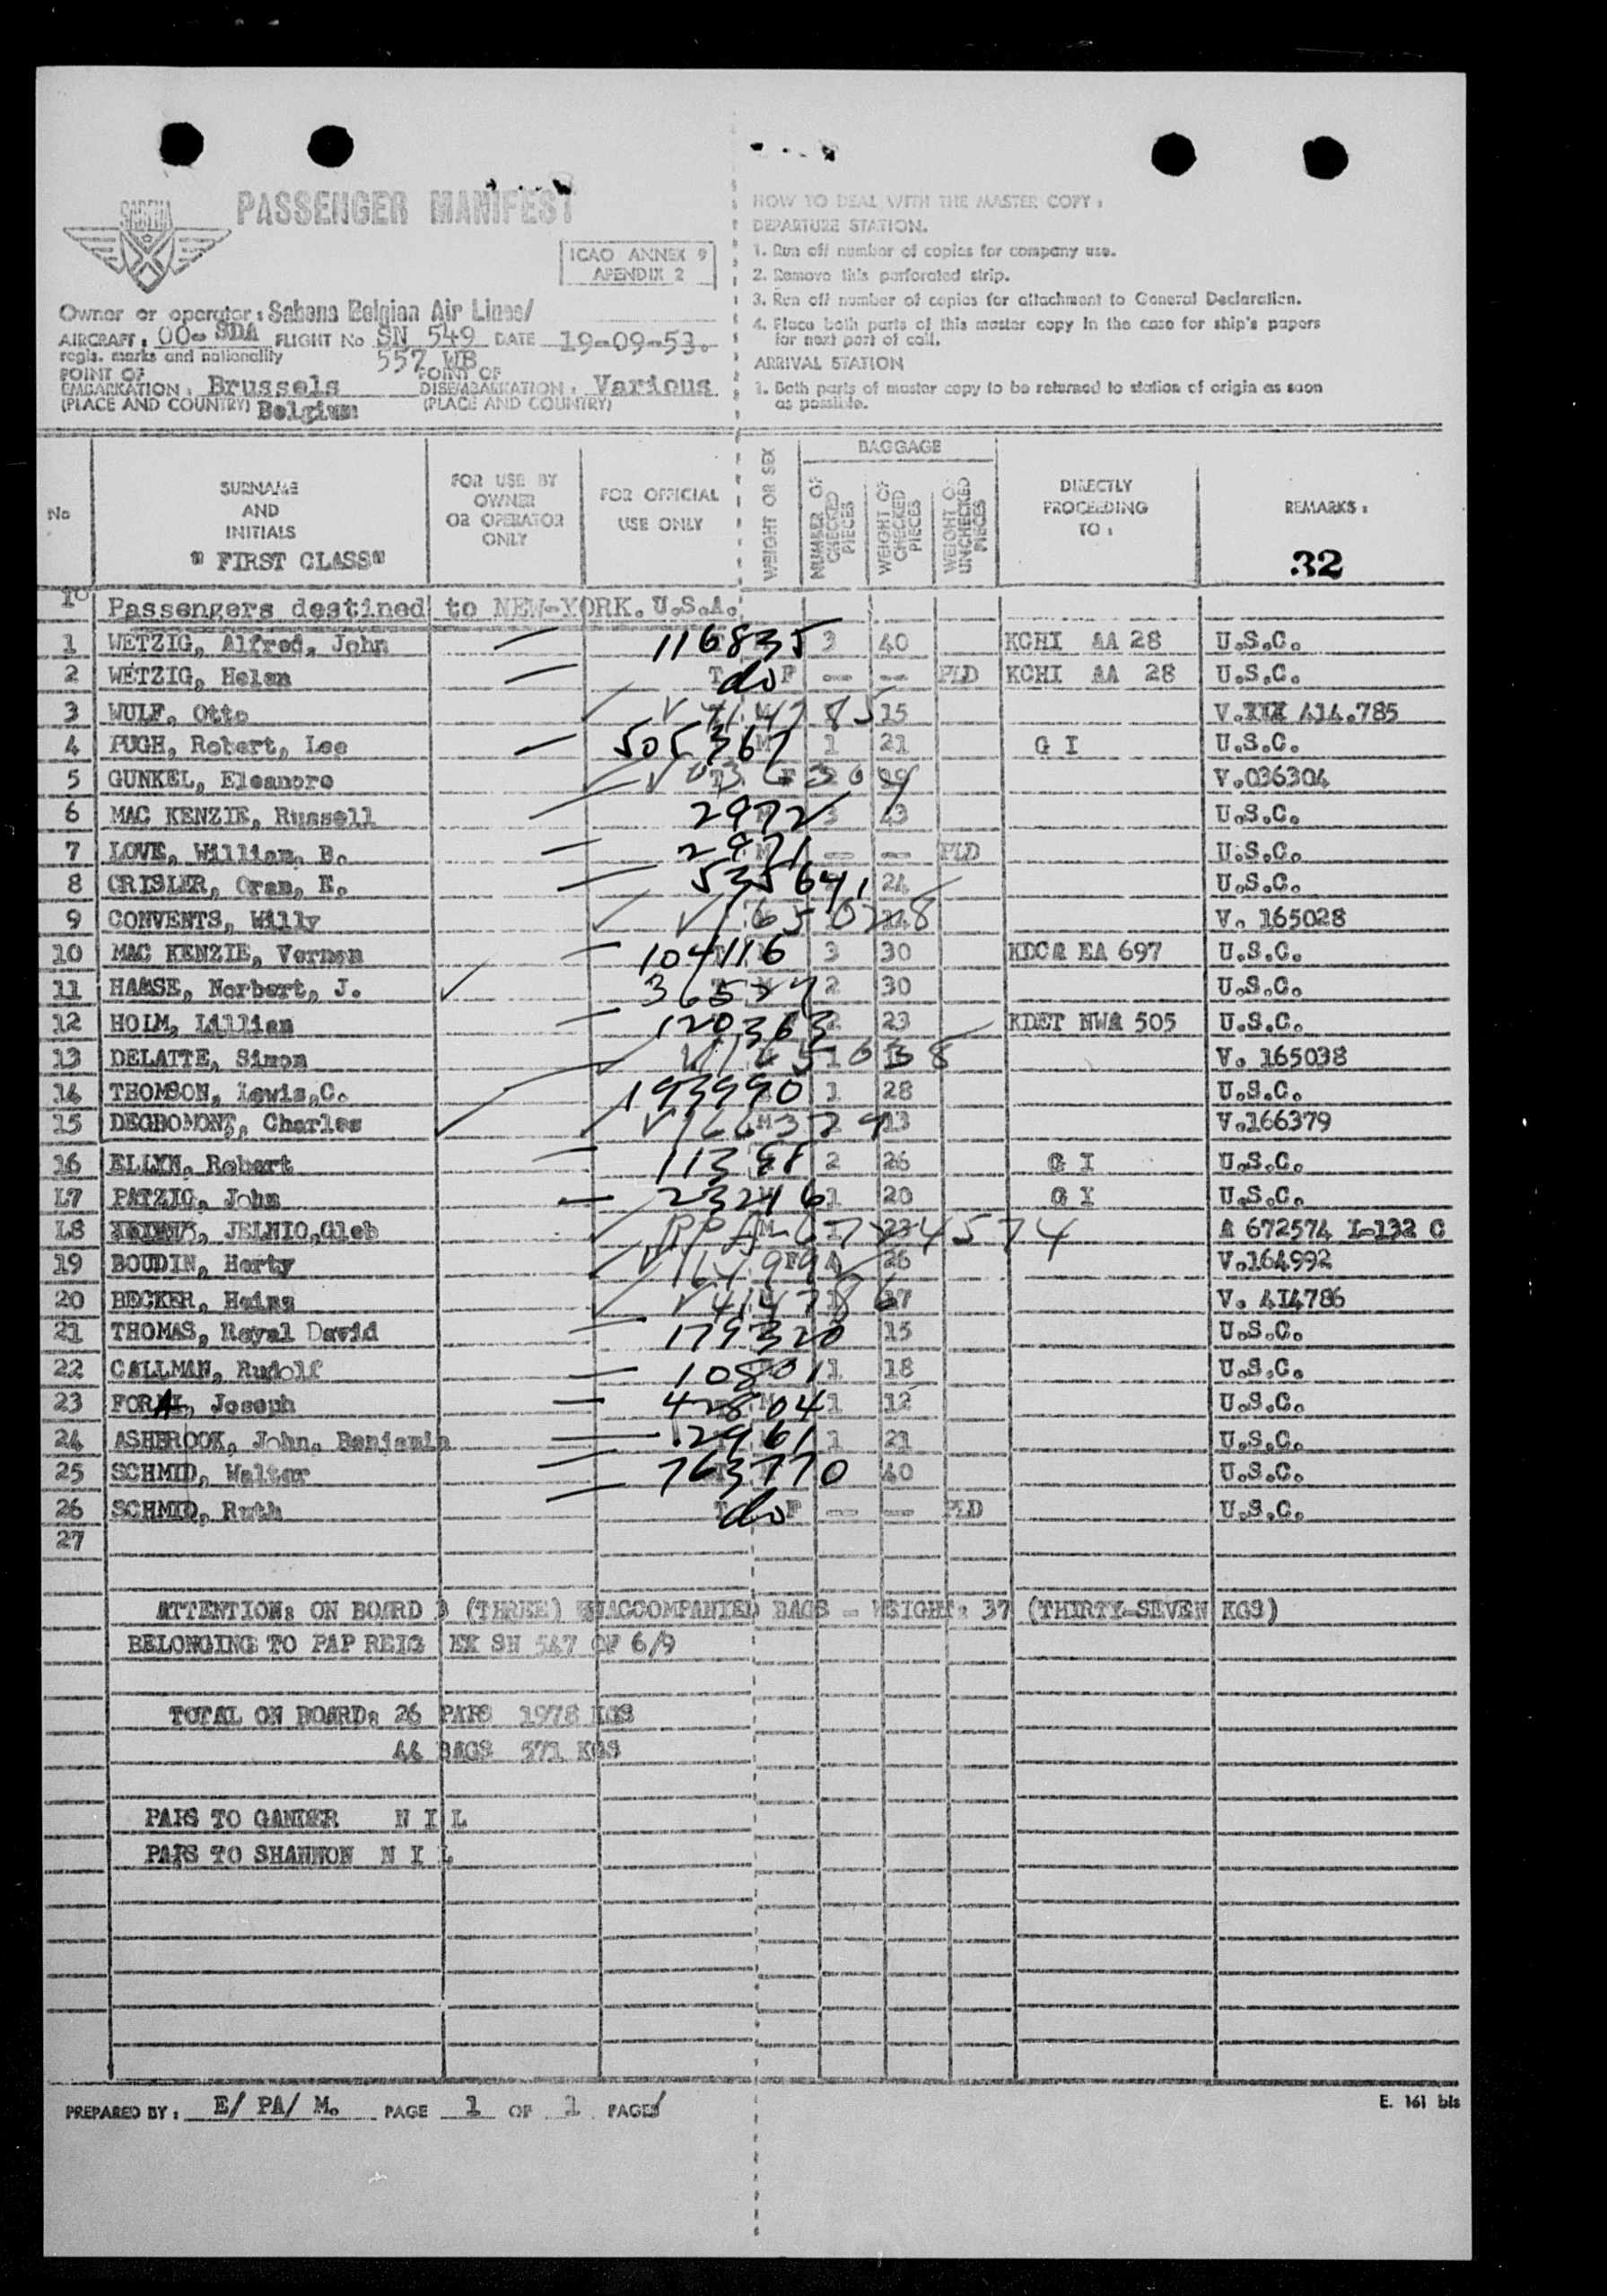 SABENA
PASSENGER MANIFEST
ICAO ANNEX 9
APENDIX 2
Owner or operator : Sabena Belgian Air Lines/
AIRCRAFT : OO- SDA FLIGHT No SN 549 DATE 19-09-53.
regis. marks and nationality 557 WB
POINT OF EMBARKATION : Brussels POINT OF DISEMBARKATION : Various
(PLACE AND COUNTRY) Belgium (PLACE AND COUNTRY)
HOW TO DEAL WITH THE MASTER COPY :
DEPARTURE STATION.
1. Run off number of copies for company use.
2. Remove this perforated strip.
3. Run off number of copies for attachment to General Declaration.
4. Place both parts of this master copy in the case for ship's papers
for next port of call.
ARRIVAL STATION
1. Both parts of master copy to be returned to station of origin as soon
as possible.
No
SURNAME
AND
INITIALS
" FIRST CLASS"
FOR USE BY
OWNER
OR OPERATOR
ONLY
FOR OFFICIAL
USE ONLY
WEIGHT OR SEX
BAGGAGE
NUMBER OF CHECKED PIECES
WEIGHT OF CHECKED PIECES
WEIGHT OF UNCHECKED PIECES
DIRECTLY
PROCEEDING
TO :
REMARKS :
32
Passengers destined to NEW-YORK. U.S.A.
1 WETZIG, Alfred, John 116835 3 40 KCHI AA 28 U.S.C.
2 WETZIG, Helen T do F -- -- PLD KCHI AA 28 U.S.C.
3 WULF, Otto V 414785 M 15 V.XXX 414.785
4 PUGH, Robert, Lee 505367 M 1 21 G I U.S.C.
5 GUNKEL, Eleanore V 036304 F V.036304
6 MAC KENZIE, Russell 2972 3 43 U.S.C.
7 LOVE, William, B. 2971 M -- -- PLD U.S.C.
8 CRISLER, Oran, E. 535641 24 U.S.C.
9 CONVENTS, Willy V 165028 V. 165028
10 MAC KENZIE, Vernon 104116 3 30 KDCA EA 697 U.S.C.
11 HAASE, Norbert, J. 36524 2 30 U.S.C.
12 HOLM, Lillian 120363 2 23 KDET NWA 505 U.S.C.
13 DELATTE, Simon V 165038 V. 165038
14 THOMSON, Lewis,C. 193990 1 28 U.S.C.
15 DEGROMONT, Charles V 166379 M 13 V.166379
16 ELLYN, Robert 2 26 G I U.S.C.
17 PATZIG, John 23246 1 20 G I U.S.C.
18 JELNIO,Gleb M 1 23 A 672574 L-132 C
19 BOUDIN, Herty V 164992 F 26 V.164992
20 BECKER, Heinz V 414786 17 V. 414786
21 THOMAS, Royal David 179320 15 U.S.C.
22 CALLMAN, Rudolf 10801 1 18 U.S.C.
23 Joseph 42804 M 1 12 U.S.C.
24 ASHBROOK, John, Benjamin 12961 1 21 U.S.C.
25 SCHMID, Walter 763770 40 U.S.C.
26 SCHMID, Ruth T do F -- -- PLD U.S.C.
27
ATTENTION: ON BOARD 3 (THREE) UNACCOMPANIED BAGS - WEIGHT: 37 (THIRTY-SEVEN KGS)
BELONGING TO PAP REIG EX SN 547 OF 6/9
TOTAL ON BOARD: 26 PAPS 1978 KGS
44 BAGS 571 KGS
PAPS TO GANDER N I L
PAPS TO SHANNON N I L
PREPARED BY : E/ PA/ M. PAGE 1 OF 1 PAGES
E. 161 bis